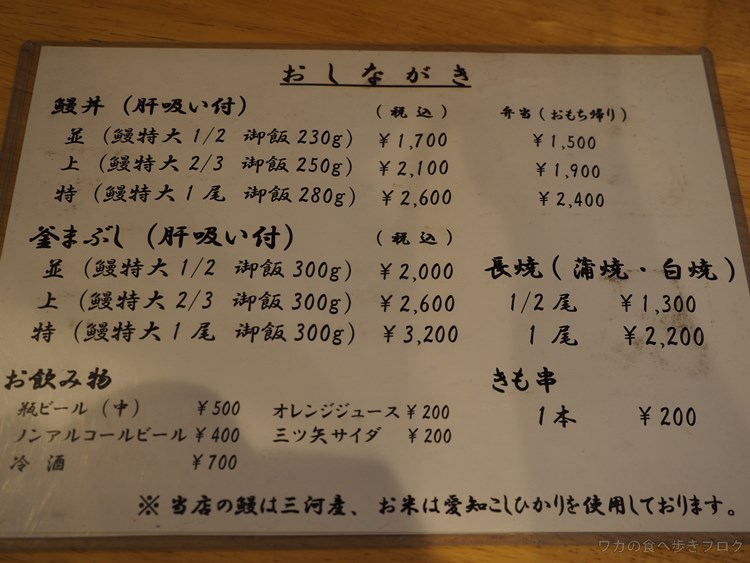 おしながき
鰻丼（肝吸い付） （税込） 弁当（おもち帰り）
並（鰻特大1/2 御飯230g） ¥1,700 ¥1,500
上（鰻特大2/3 御飯250g） ¥2,100 ¥1,900
特（鰻特大1尾 御飯280g） ¥2,600 ¥2,400
釜まぶし（肝吸い付） （税込）
並（鰻特大1/2 御飯300g） ¥2,000
上（鰻特大2/3 御飯300g） ¥2,600
特（鰻特大1尾 御飯300g） ¥3,200
長焼（蒲焼・白焼）
1/2尾 ¥1,300
1尾 ¥2,200
お飲み物
瓶ビール（中） ¥500 オレンジジュース ¥200
ノンアルコールビール ¥400 三ツ矢サイダ ¥200
冷酒 ¥700
きも串
1本 ¥200
※当店の鰻は三河産、お米は愛知こしひかりを使用しております。
ワカの食べ歩きブログ